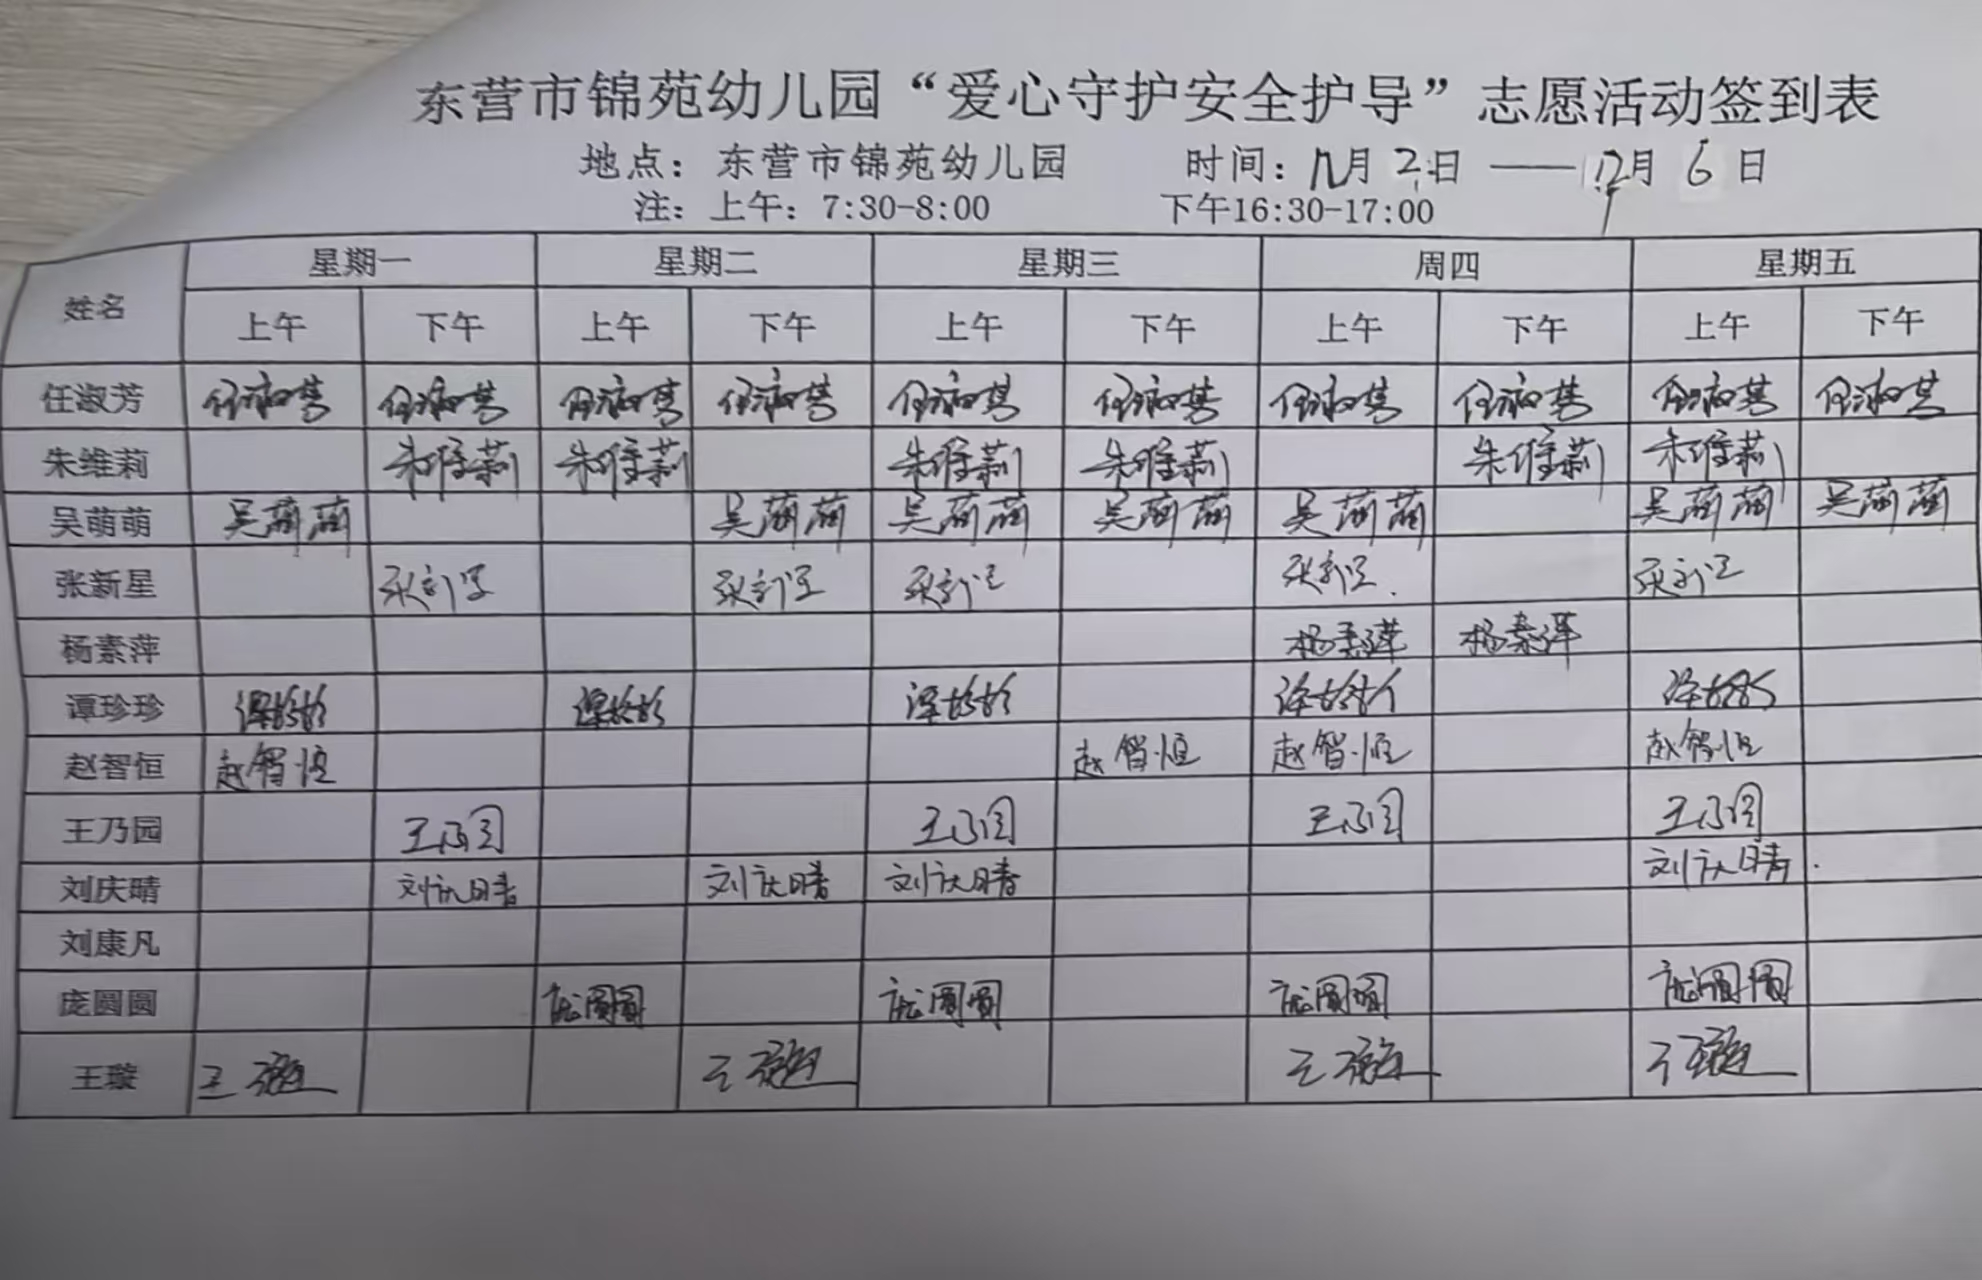 东营市锦苑幼儿园“爱心守护安全护导”志愿活动签到表
地点：东营市锦苑幼儿园 时间：12月2日——12月6日
注：上午：7:30-8:00 下午16:30-17:00
姓名 星期一 星期二 星期三 周四 星期五
上午 下午 上午 下午 上午 下午 上午 下午 上午 下午
任淑芳 任淑芳 任淑芳 任淑芳 任淑芳 任淑芳 任淑芳 任淑芳 任淑芳 任淑芳 任淑芳
朱维莉 朱维莉 朱维莉 朱维莉 朱维莉 朱维莉 朱维莉
吴萌萌 吴萌萌 吴萌萌 吴萌萌 吴萌萌 吴萌萌 吴萌萌 吴萌萌
张新星 张新星 张新星 张新星 张新星 张新星
杨素萍 杨素萍 杨素萍
谭珍珍 谭珍珍 谭珍珍 谭珍珍 谭珍珍 谭珍珍
赵智恒 赵智恒 赵智恒 赵智恒 赵智恒
王乃园 王乃园 王乃园 王乃园 王乃园
刘庆晴 刘庆晴 刘庆晴 刘庆晴 刘庆晴
刘康凡
庞圆圆 庞圆圆 庞圆圆 庞圆圆 庞圆圆
王璇 王璇 王璇 王璇 王璇